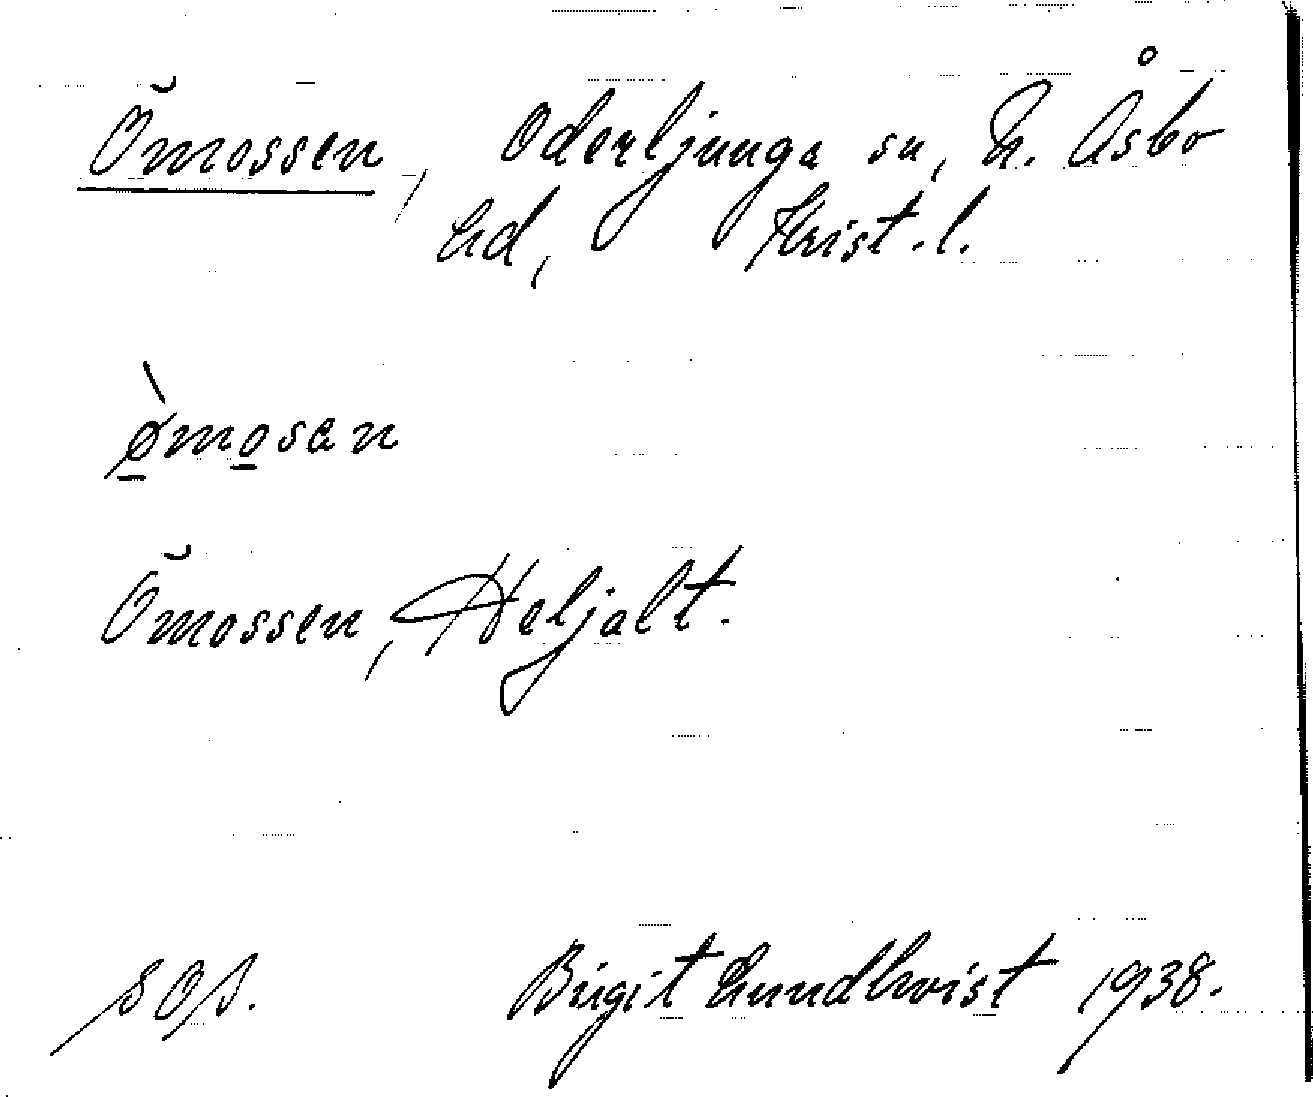 Ömossen, Oderljunga sn, N. Åsbo
hd, Krist. l.
ø̀mosan
Ömossen, Heljalt.
SOS. Birgit Lundkvist 1938.